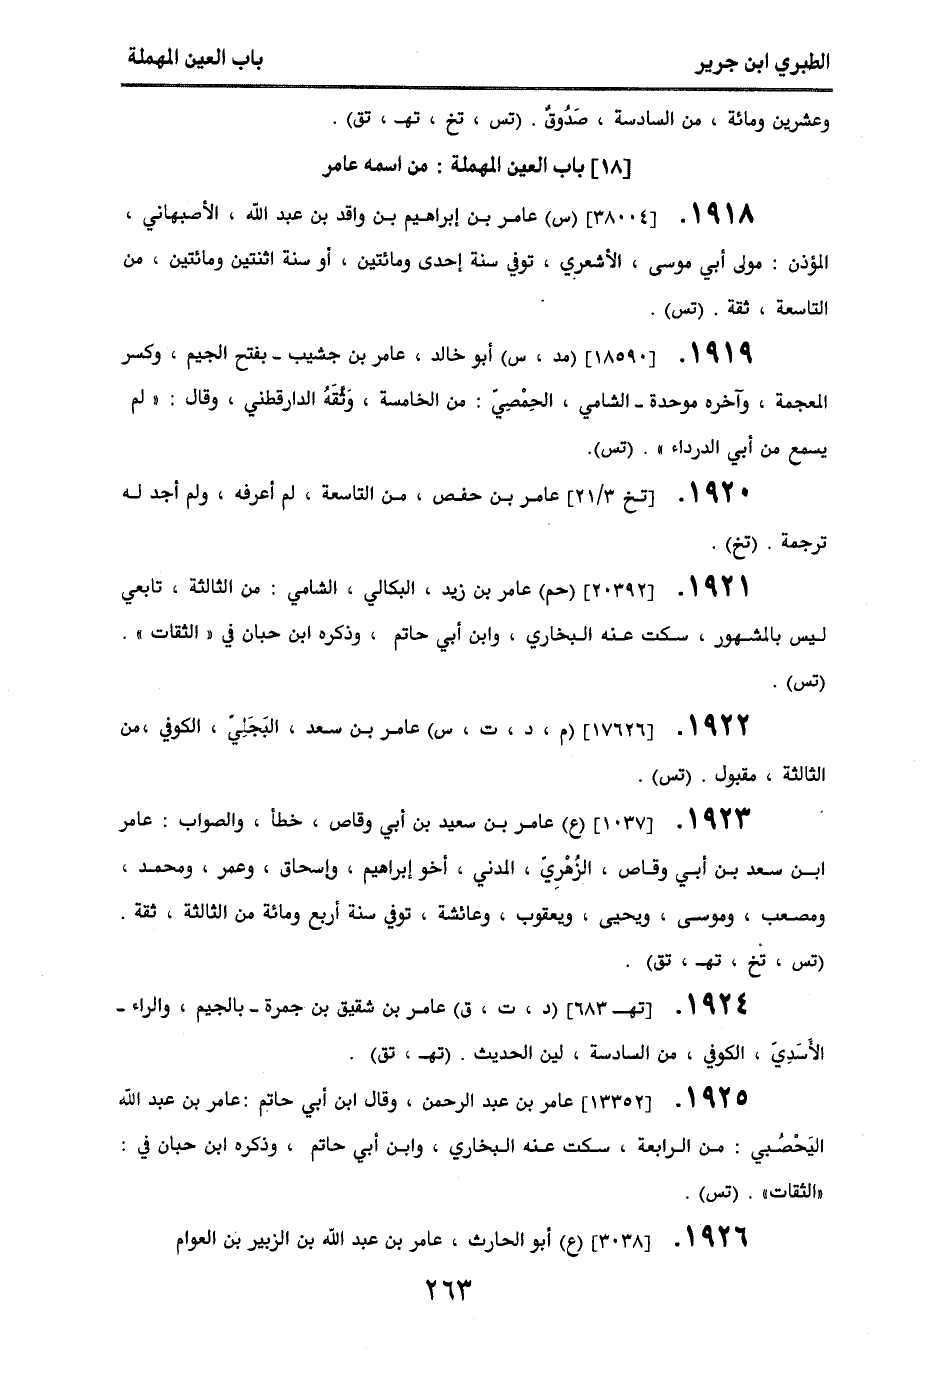 الطبري ابن جرير باب العين المهملة
وعشرين ومائة ، من السادسة ، صَدُوقٌ . (تس ، تخ ، تهـ ، تق) .
[١٨] باب العين المهملة : من اسمه عامر
١٩١٨. [٣٨٠٠٤] (س) عامر بن إبراهيم بن واقد بن عبد الله ، الأصبهاني ،
المؤذن : مولى أبي موسى ، الأشعري ، توفي سنة إحدى ومائتين ، أو سنة اثنتين ومائتين ، من
التاسعة ، ثقة . (تس) .
١٩١٩. [١٨٥٩٠] (مد ، س) أبو خالد ، عامر بن جشيب ـ بفتح الجيم ، وكسر
المعجمة ، وآخره موحدة ـ الشامي ، الحِمْصِيّ : من الخامسة ، وَثَّقَهُ الدارقطني ، وقال : « لم
يسمع من أبي الدرداء » . (تس).
١٩٢٠. [تخ ٢١/٣] عامر بن حفص ، من التاسعة ، لم أعرفه ، ولم أجد له
ترجمة . (تخ) .
١٩٢١. [٢٠٣٩٢] (حم) عامر بن زيد ، البكالي ، الشامي : من الثالثة ، تابعي
ليس بالمشهور ، سكت عنه البخاري ، وابن أبي حاتم ، وذكره ابن حبان في « الثقات » .
(تس) .
١٩٢٢. [١٧٦٢٦] (م ، د ، ت ، س) عامر بن سعد ، البَجَلِيّ ، الكوفي ،من
الثالثة ، مقبول . (تس) .
١٩٢٣. [١٠٣٧] (ع) عامر بن سعيد بن أبي وقاص ، خطأ ، والصواب : عامر
ابن سعد بن أبي وقاص ، الزُهْرِيّ ، المدني ، أخو إبراهيم ، وإسحاق ، وعمر ، ومحمد ،
ومصعب ، وموسى ، ويحيى ، ويعقوب ، وعائشة ، توفي سنة أربع ومائة من الثالثة ، ثقة .
(تس ، تخ ، تهـ ، تق) .
١٩٢٤. [تهـ ٦٨٣] (د ، ت ، ق) عامر بن شقيق بن جمرة ـ بالجيم ، والراء ـ
الأَسَدِيّ ، الكوفي ، من السادسة ، لين الحديث . (تهـ ، تق) .
١٩٢٥. [١٣٣٥٢] عامر بن عبد الرحمن ، وقال ابن أبي حاتم :عامر بن عبد الله
اليَحْصُبي : من الرابعة ، سكت عنه البخاري ، وابن أبي حاتم ، وذكره ابن حبان في :
«الثقات» . (تس) .
١٩٢٦. [٣٠٣٨] (ع) أبو الحارث ، عامر بن عبد الله بن الزبير بن العوام
٢٦٣